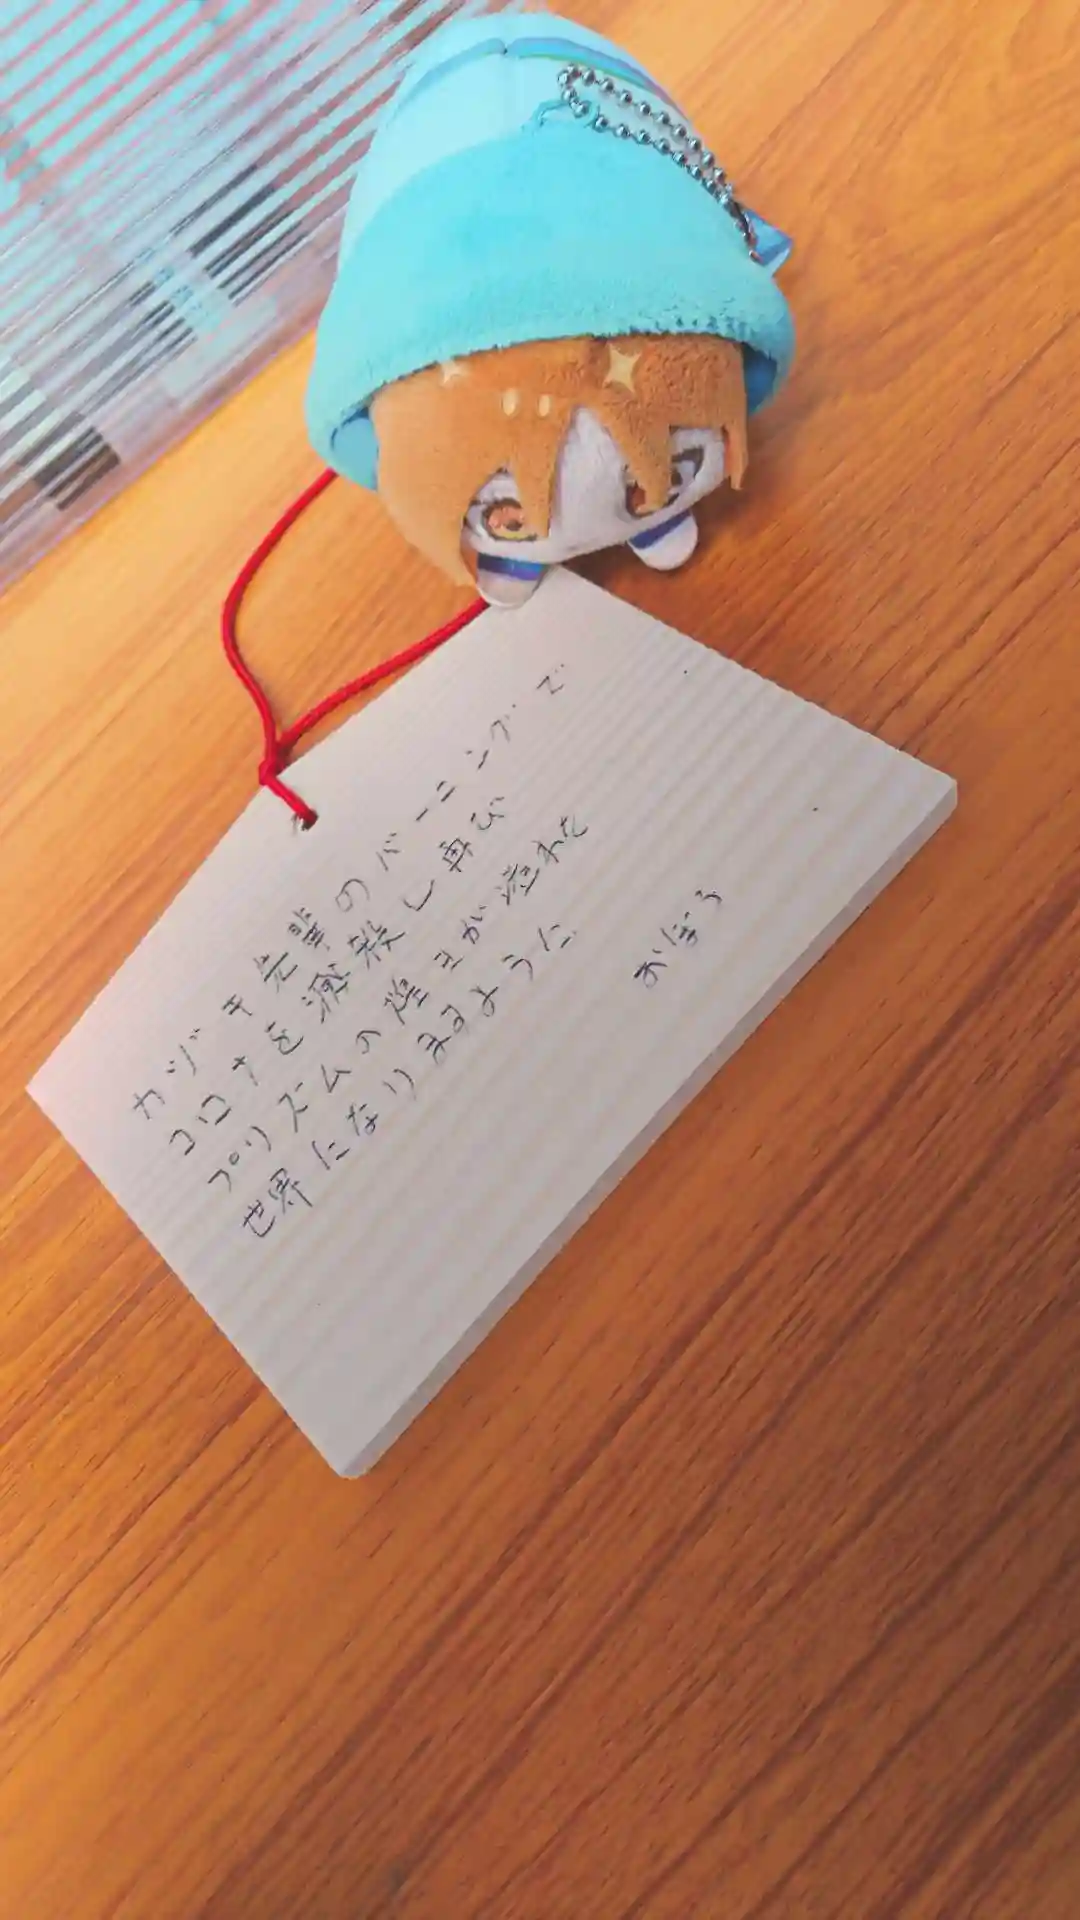 カヅキ先輩のバーニングで
コロナを滅殺し再び
プリズムの煌きが溢れた
世界になりますように
おぼろ